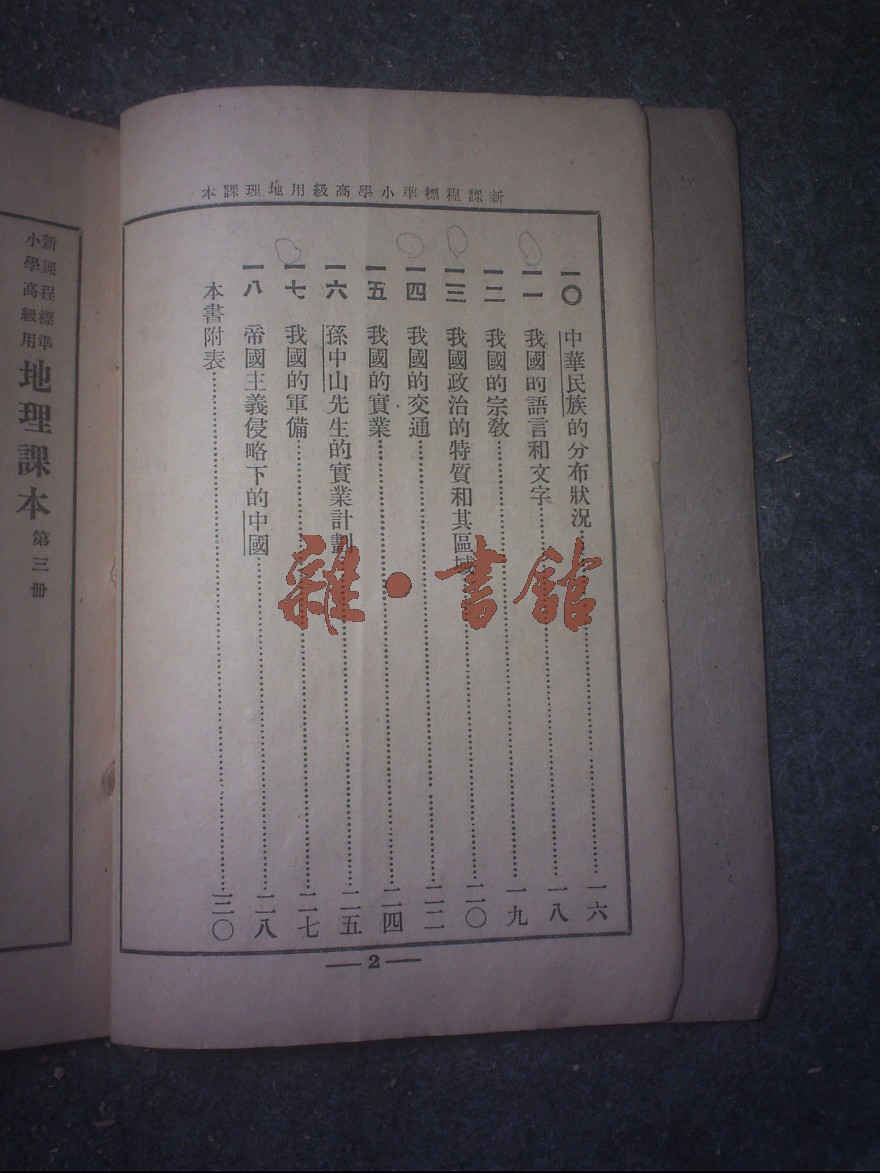 新課程標準小學高級用地理課本
一〇 中華民族的分布狀況……一六
一一 我國的語言和文字……一八
一二 我國的宗教……一九
一三 我國政治的特質和其區域……二〇
一四 我國的交通……二二
一五 我國的實業……二四
一六 孫中山先生的實業計劃……二五
一七 我國的軍備……二七
一八 帝國主義侵略下的中國……二八
本書附表……三〇
—2—
新課程標準
小學高級用
地理課本 第三册
雜·書館